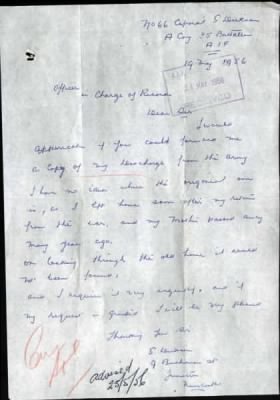 No 66 Corporal S
A Coy 25 Battalion
A I F
19 May 1956
Officer
in Charge of Records
Dear Sir
I would
appreciate if you could forward me
a Copy of my discharge from the army
I have no idea where the original one
is, as I left home soon after my return
from the war, and my Mother passed away
many years ago,
on looking through the old home it could
not been found,
and I require it very urgently, and if
my request is granted I will be very pleased
Thanking you Sir
S
advised
25/5/56